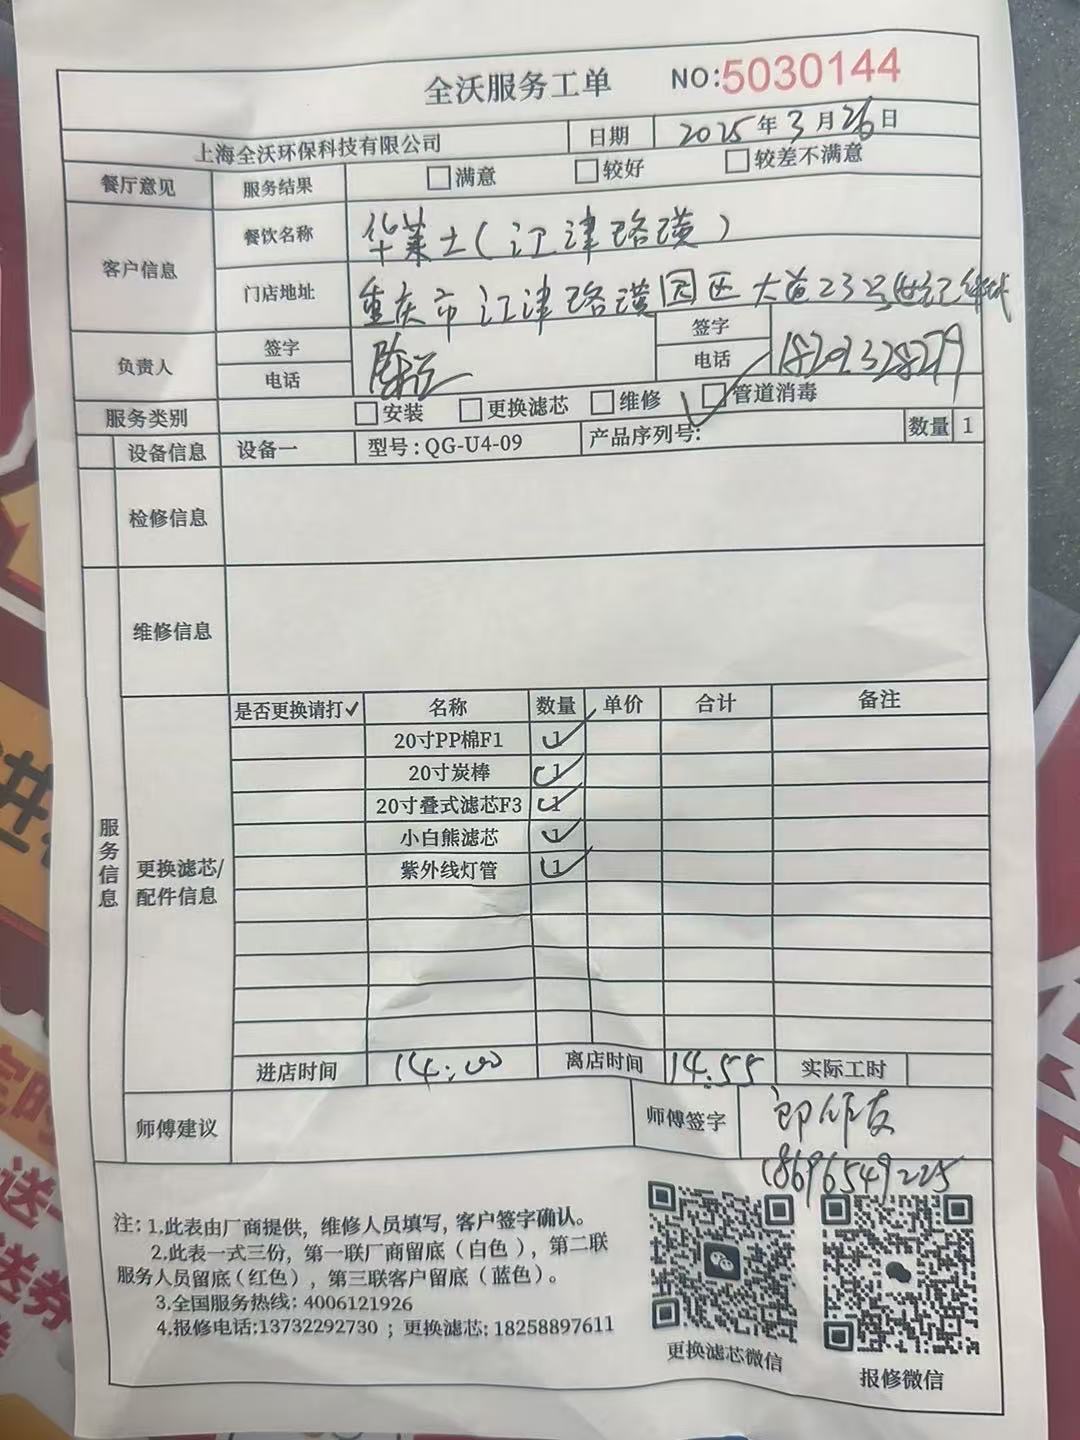 全沃服务工单 NO:5030144
上海全沃环保科技有限公司 日期 2025年3月26日
餐厅意见 服务结果 满意 较好 较差不满意
客户信息 餐饮名称 华莱士(江津珞璜)
门店地址 重庆市江津珞璜园区大道23号
负责人 签字 签字
电话 电话 18202328279
服务类别 安装 更换滤芯 维修 管道消毒
设备信息 设备一 型号:QG-U4-09 产品序列号: 数量 1
检修信息
维修信息
服务信息
更换滤芯/配件信息
是否更换请打✓ 名称 数量 单价 合计 备注
20寸PP棉F1 1 ✓
20寸炭棒 1 ✓
20寸叠式滤芯F3 1 ✓
小白熊滤芯 1 ✓
紫外线灯管 1 ✓
进店时间 14:00 离店时间 14:55 实际工时
师傅建议 师傅签字
18696549225
注: 1.此表由厂商提供，维修人员填写，客户签字确认。
2.此表一式三份，第一联厂商留底（白色），第二联
服务人员留底（红色），第三联客户留底（蓝色）。
3.全国服务热线: 4006121926
4.报修电话:13732292730 ；更换滤芯: 18258897611
更换滤芯微信 报修微信